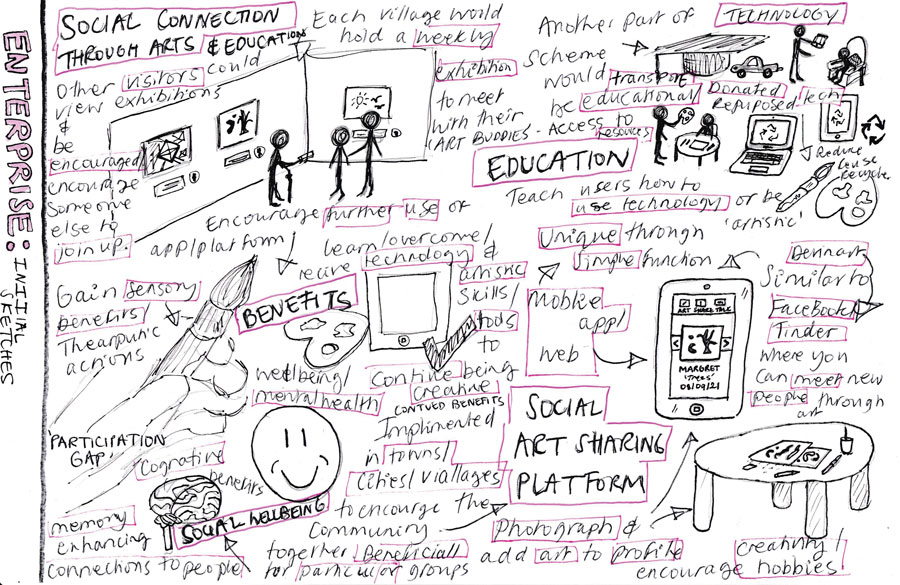 ENTERPRISE: INITIAL SKETCHES
SOCIAL CONNECTION
THROUGH ARTS & EDUCATIONS
Each village would
hold a weekly
exhibition
to meet
with their
ART BUDDIES - Access to
resources
Other visitors could
view exhibitions
&
be
encouraged
encourage
someone
else to
join up.
Another part of
scheme
would transpose
be educational
TECHNOLOGY
Donated
Repurposed tech
Reduce
reuse
Recycle
EDUCATION
Teach users how to
use technology or be
'artistic'
Encourage further use of
app/platform
Unique through
simple function
Learn/overcome/
technology &
artistic
skills/
tools
to
contine being
creative
CONTUED BENEFITS
Implimented
in towns/
cities/viallages
to encourge the
Community
together Beneficiall
for particulor groups
Gain sensory
benefits/
Therarputic
actions
BENEFITS
wellbeing/
mental health
PARTICIPATION
GAP!
Cognative
benefits
SOCIAL WELLBEING
memory
enhancing
connections to people
Moblie
app/
web
SOCIAL
ART SHARING
PLATFORM
ART SHARE TALK
MARGRET
'Trees'
08/09/21
Similar to
FaceBook
Tinder
where you
can meet new
people through
art
Photograph &
add art to profile
creativity/
encourage hobbies